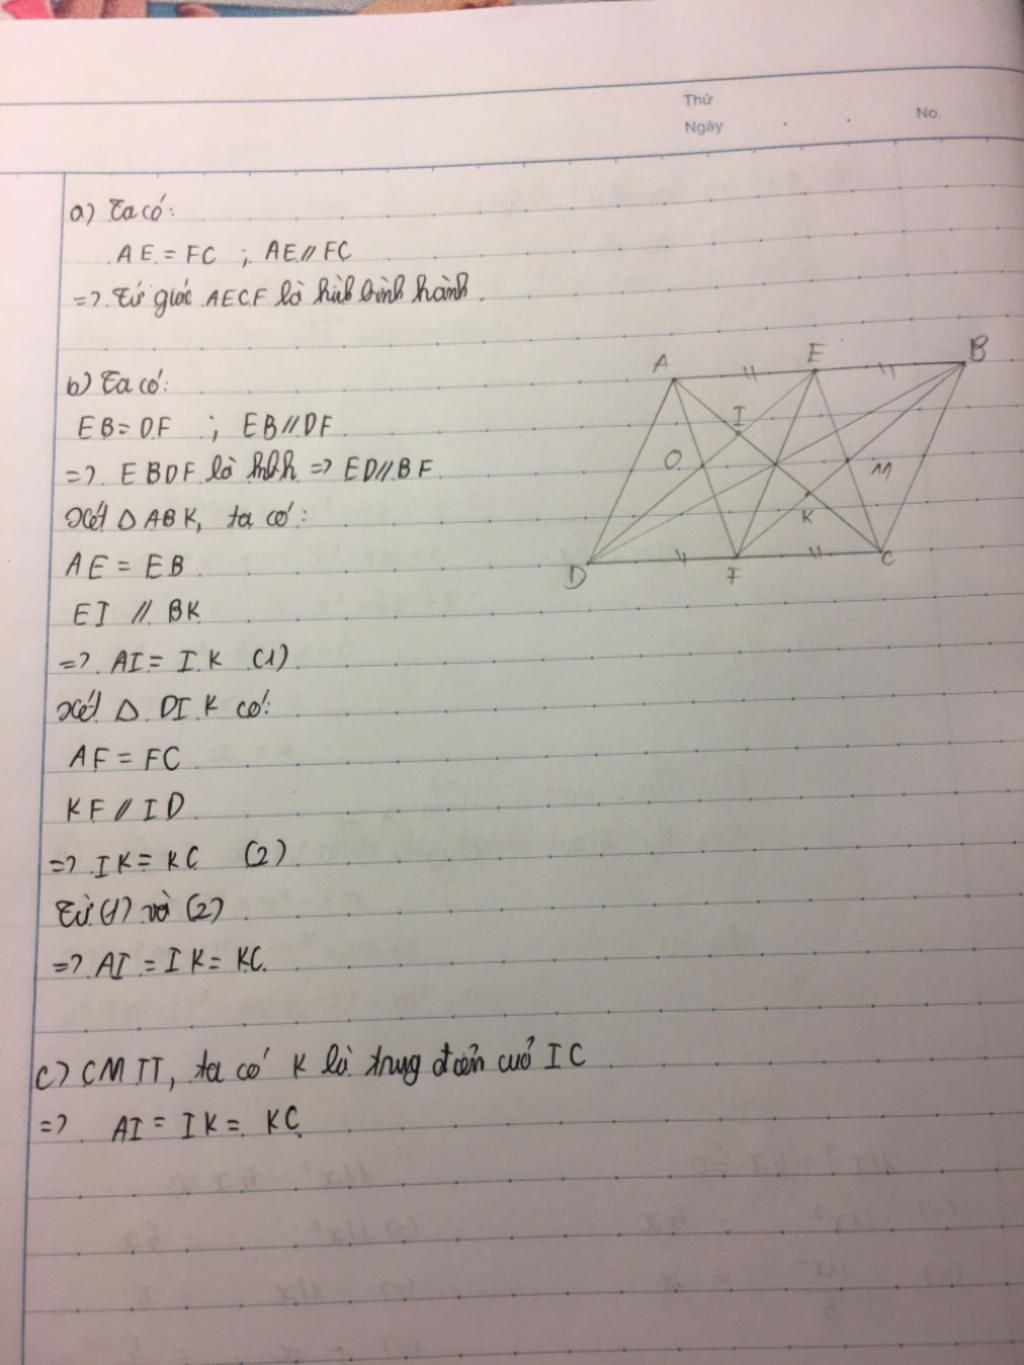 Thứ
Ngày
No.
a) Ta có:
AE = FC ; AE // FC
=> Tứ giác AECF là hình bình hành.
b) Ta có:
EB = DF ; EB // DF
=> EBDF là hbh => ED // BF
Xét Δ ABK, ta có:
AE = EB
EI // BK
=> AI = IK (1)
Xét Δ DIK có:
AF = FC
KF // ID
=> IK = KC (2)
Từ (1) và (2)
=> AI = IK = KC.
c) CMTT, ta có K là trung điểm của IC
=> AI = IK = KC
A E B
I
O M
K
D F C